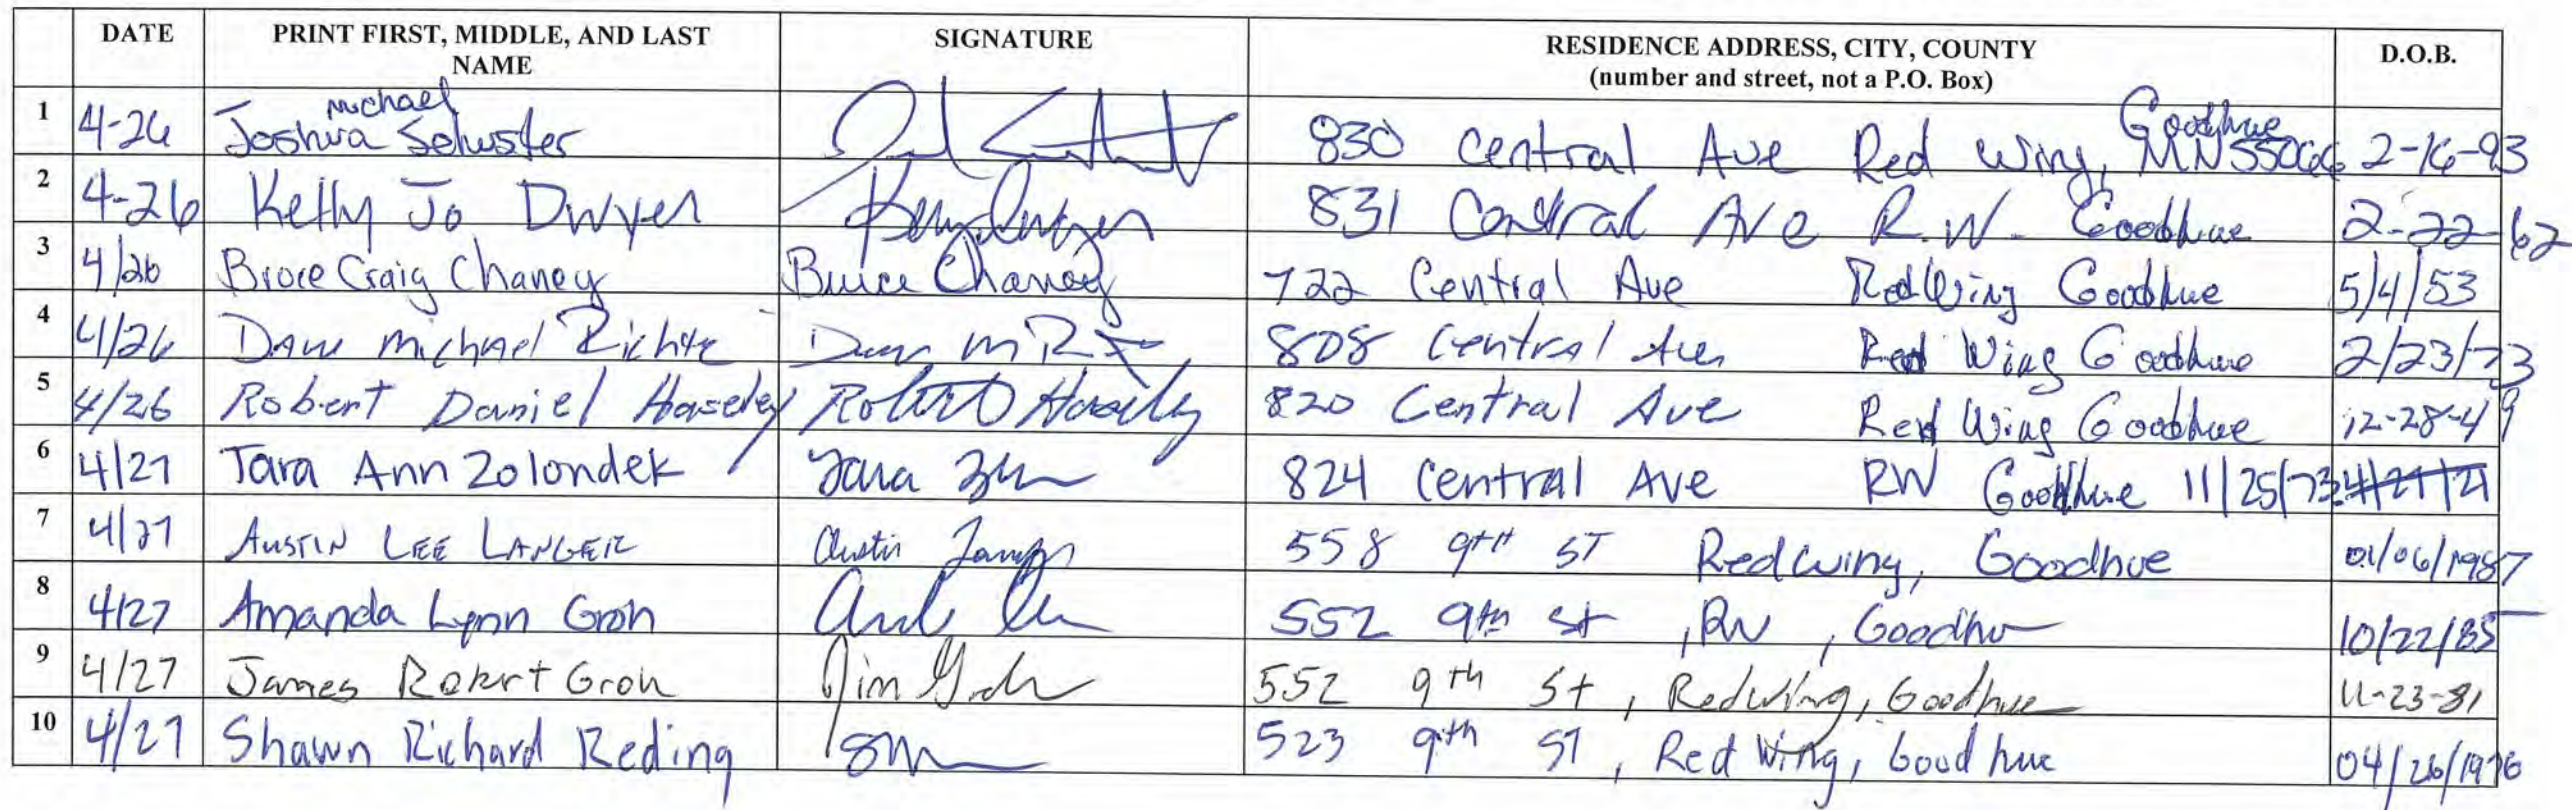 DATE PRINT FIRST, MIDDLE, AND LAST NAME SIGNATURE RESIDENCE ADDRESS, CITY, COUNTY (number and street, not a P.O. Box) D.O.B.
1 4-26 Joshua michael 830 Central Ave Red Wing, Goodhue MN 55066 2-16-93
2 4-26 Kelly Jo Dwyer 831 Central Ave R.W. Goodhue 2-22-62
3 4/26 Bruce Craig Chaney Bruce Chaney 722 Central Ave Red Wing Goodhue 5/4/53
4 4/26 michael 808 Central Ave Red Wing Goodhue 2/23/73
5 4/26 Robert Daniel Haseley Robert Haseley 820 Central Ave Red Wing Goodhue 12-28-49
6 4/27 Tara Ann Zolondek Tara 824 Central Ave RW Goodhue 11/25/73
7 4/27 AUSTIN LEE LANGER Austin 558 9TH ST Redwing, Goodhue 01/06/1987
8 4/27 Amanda Lynn Groh 552 9th st, RW, 10/22/85
9 4/27 James Robert Groh Jim Groh 552 9th St, Redwing, Goodhue 11-23-81
10 4/27 Shawn Richard Reding 523 9th ST, Red Wing, Goodhue 04/26/1976